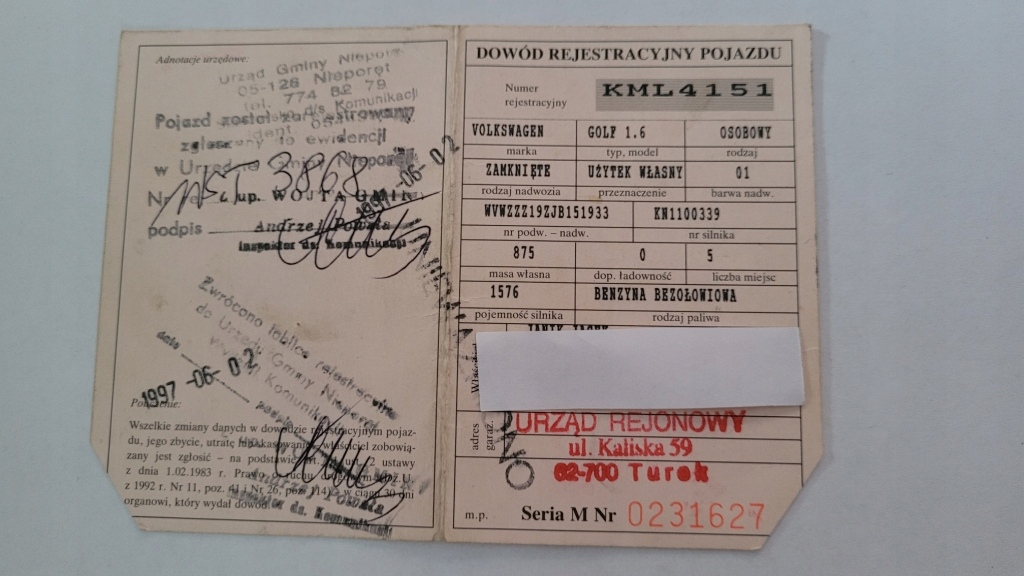 Adnotacje urzędowe:
Urząd Gminy Niepor
05-126 Nieporęt
tel. 774 82 79
ds Komunikacji
Pojazd został zarejestrowany
zgłoszony do ewidencji
w Urzędzie Gminy Nieporęt
Nr NET 3868
z up. WÓJTA GMINY
1997-06-02
podpis Andrzej
Inspektor ds. Komunikacji
Zwrócono tablice rejestracyjne
do Urzędu Gminy Nieporęt
Komunikacji
dnia 1997-06-02
Pouczenie:
Wszelkie zmiany danych w dowodzie rejestracyjnym pojaz-
du, jego zbycie, utratę lub skasowanie właściciel zobowią-
zany jest zgłosić – na podstawie art. ust. 2 ustawy
z dnia 1.02.1983 r. Prawo o ruchu drogowym
z 1992 r. Nr 11, poz. 41 i Nr 26, poz. 114) – w ciągu 30 dni
organowi, który wydał dowód.
Inspektor ds. Komunikacji
DOWÓD REJESTRACYJNY POJAZDU
Numer
rejestracyjny
KML4151
VOLKSWAGEN GOLF 1.6 OSOBOWY
marka typ, model rodzaj
ZAMKNIĘTE UŻYTEK WŁASNY 01
rodzaj nadwozia przeznaczenie barwa nadw.
WVWZZZ19ZJB151933 KN1100339
nr podw. – nadw. nr silnika
875 0 5
masa własna dop. ładowność liczba miejsc
1576 BENZYNA BEZOŁOWIOWA
pojemność silnika rodzaj paliwa
adres
garaż.
URZĄD REJONOWY
ul. Kaliska 59
62-700 Turek
m.p. Seria M Nr 0231627